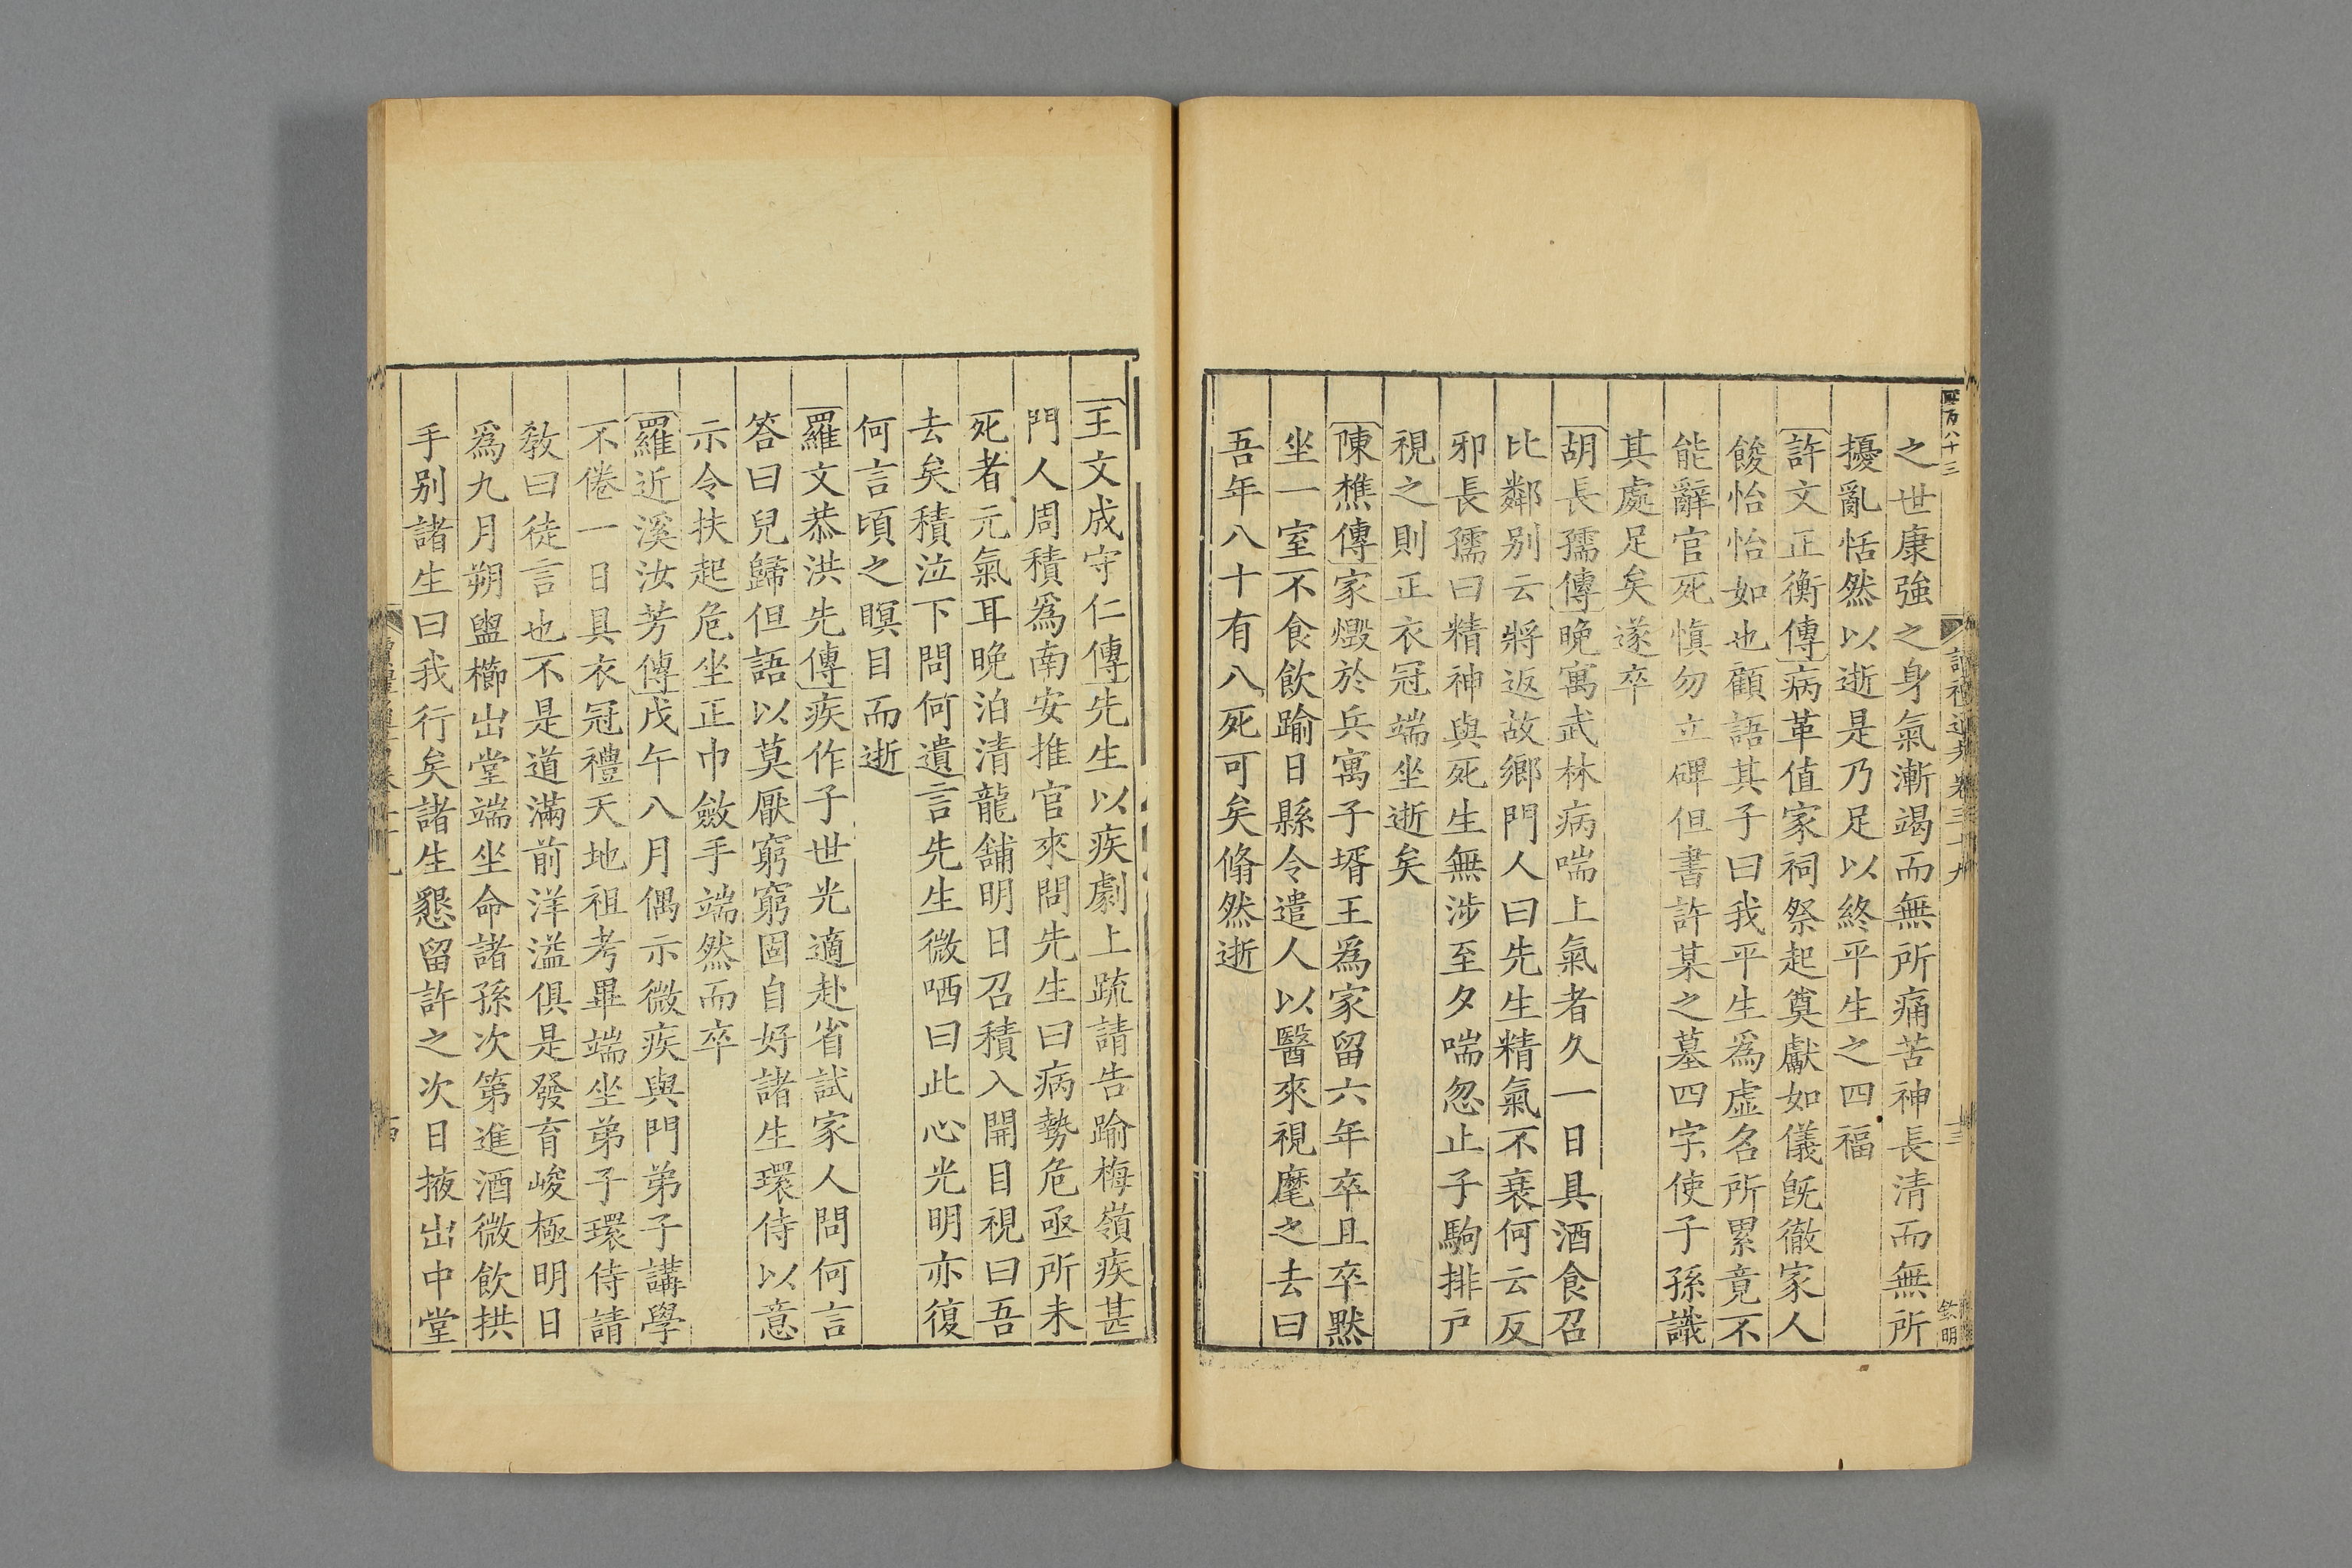 四百八十三
讀禮通考卷三十九
十三
欽明
之世康強之身氣漸竭而無所痛苦神長清而無所
擾亂恬然以逝是乃足以終平生之四福
許文正衡傳病革值家祠祭起奠獻如儀旣徹家人
餕怡怡如也顧語其子曰我平生爲虛名所累竟不
能辭官死愼勿立碑但書許某之墓四字使子孫識
其處足矣遂卒
胡長孺傳晚寓武林病喘上氣者久一日具酒食召
比鄰别云將返故鄉門人曰先生精氣不衰何云反
邪長孺曰精神與死生無涉至夕喘忽止子駒排戸
視之則正衣冠端坐逝矣
陳樵傳家燬於兵寓子壻王爲家留六年卒且卒黙
坐一室不食飮踰日縣令遣人以醫來視麾之去曰
吾年八十有八死可矣翛然逝
王文成守仁傳先生以疾劇上疏請告踰梅嶺疾甚
門人周積爲南安推官來問先生曰病勢危亟所未
死者元氣耳晚泊清龍舖明日召積入開目視曰吾
去矣積泣下問何遺言先生微哂曰此心光明亦復
何言頃之瞑目而逝
羅文恭洪先傳疾作子世光適赴省試家人問何言
答曰兒歸但語以莫厭窮窮固自好諸生環侍以意
示令扶起危坐正巾斂手端然而卒
羅近溪汝芳傳戊午八月偶示微疾與門弟子講學
不倦一日具衣冠禮天地祖考畢端坐弟子環侍請
敎曰徒言也不是道滿前洋溢俱是發育峻極明日
爲九月朔盥櫛出堂端坐命諸孫次第進酒微飮拱
手别諸生曰我行矣諸生懇留許之次日掖出中堂